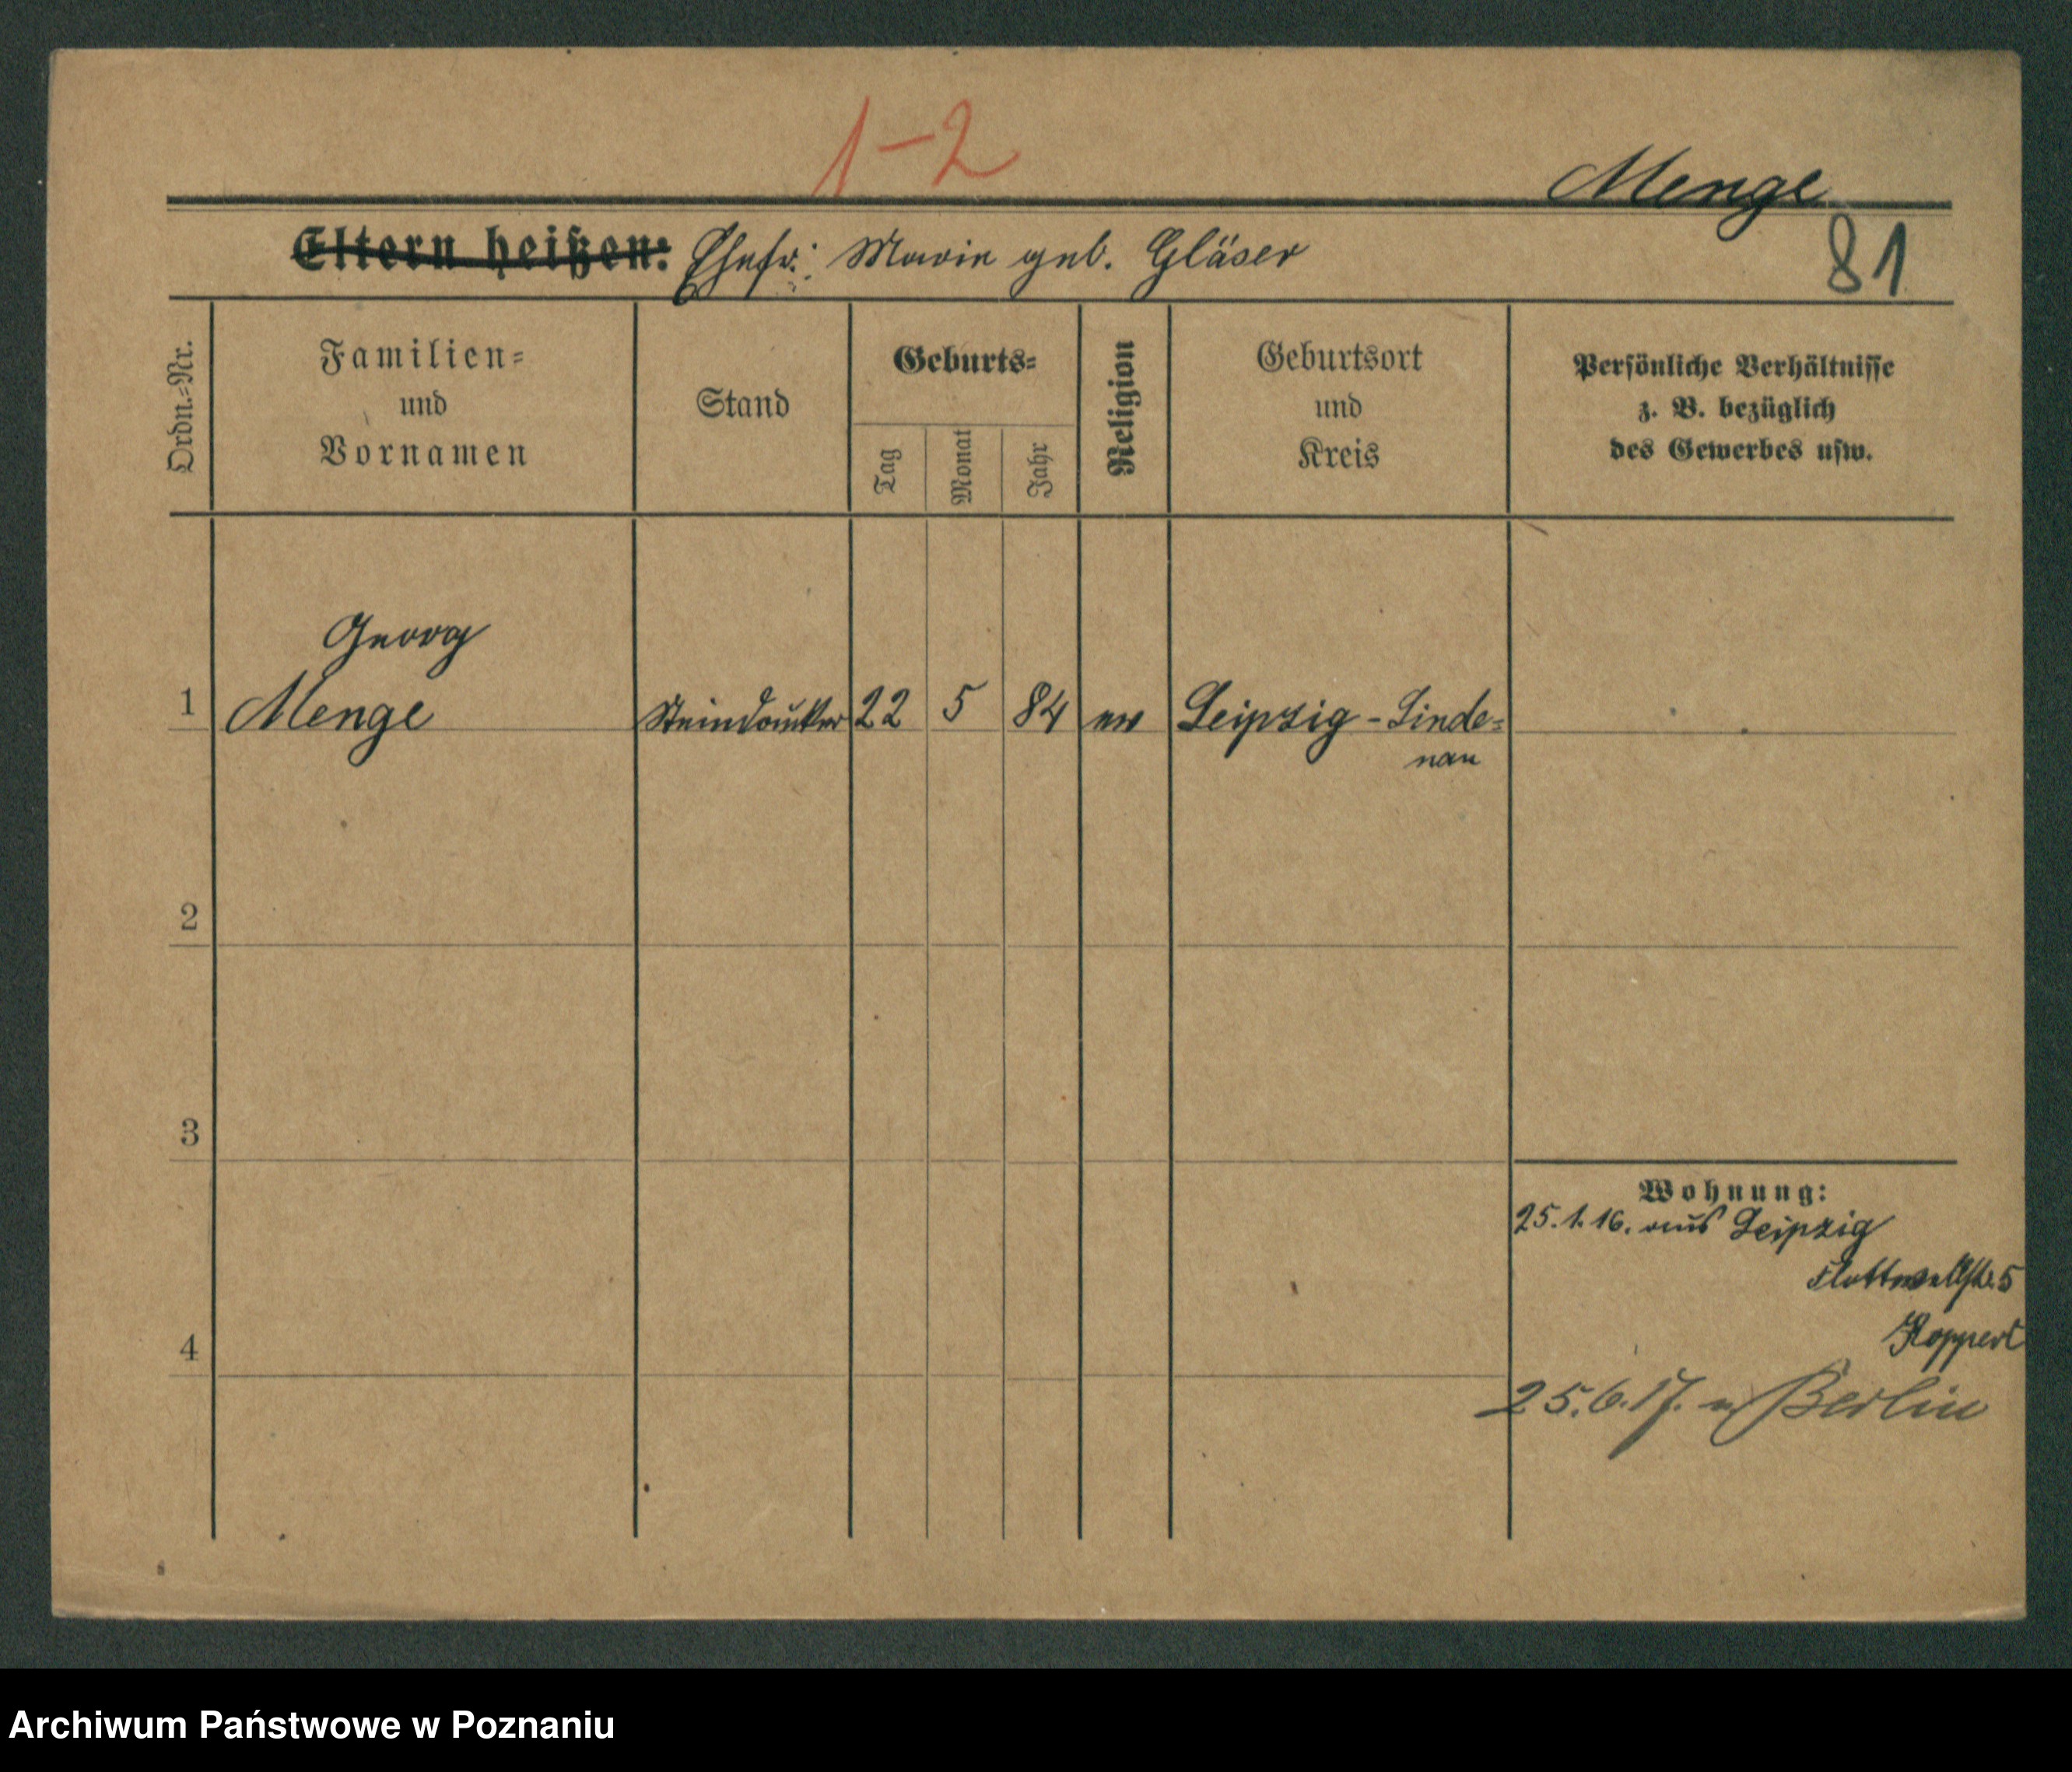 1-2
Menge
Eltern heißen: Ehefr.: Marie geb. Gläser
81
Ordn.=Nr.
Familien=
und
Vornamen
Stand
Geburts=
Tag
Monat
Jahr
Religion
Geburtsort
und
Kreis
Persönliche Verhältnisse
z. B. bezüglich
des Gewerbes usw.
Georg
1 Menge Steindrucker 22 5 84 ev Leipzig-Linde=
nau
2
3
Wohnung:
25.1.16. aus Leipzig
Flottwellstr. 5
Koppert
4
25.6.17. n Berlin
Archiwum Państwowe w Poznaniu